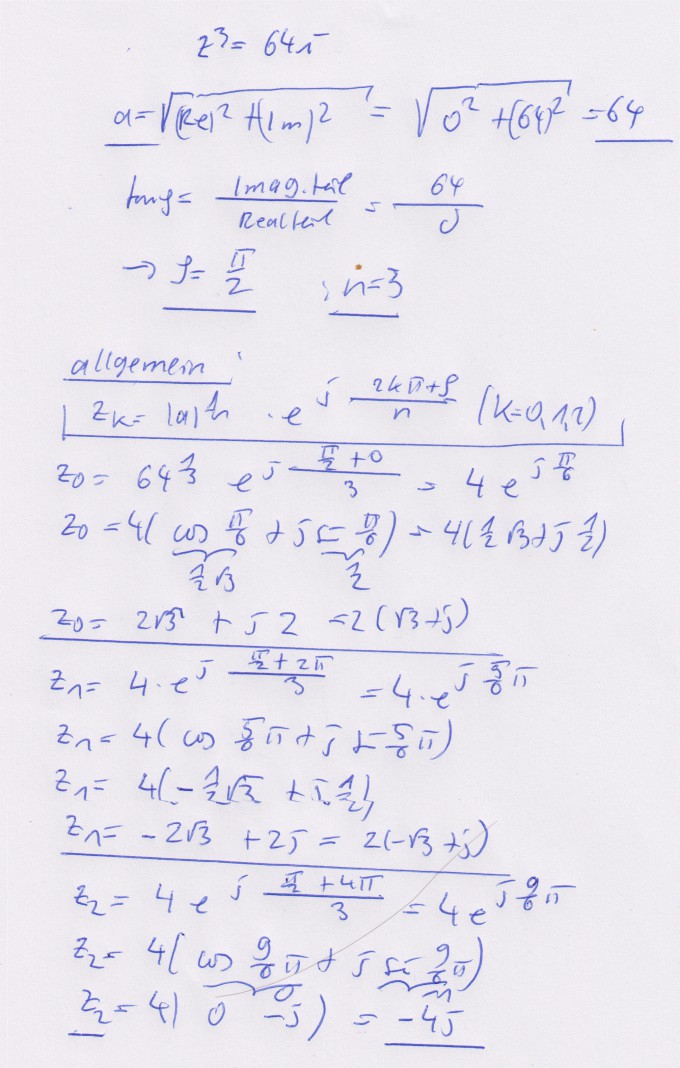 z³ = 64j
a = √((Re)² + (Im)²) = √(0² + (64)²) = 64
tan φ = Imag.teil / Realteil = 64 / 0
→ φ = π/2 ; n=3
allgemein
z_K = |a|^(1/n) · e^(j (2kπ+φ)/n) (K=0,1,2)
z₀ = 64^(1/3) e^(j (π/2 + 0)/3) = 4 e^(j π/6)
z₀ = 4( cos π/6 + j sin π/6 ) = 4( 1/2 √3 + j 1/2 )
1/2 √3 1/2
z₀ = 2√3 + j 2 = 2(√3 + j)
z₁ = 4 · e^(j (π/2 + 2π)/3) = 4 · e^(j 5/6 π)
z₁ = 4( cos 5/6 π + j sin 5/6 π )
z₁ = 4( -1/2 √3 + j · 1/2 )
z₁ = -2√3 + 2j = 2(-√3 + j)
z₂ = 4 e^(j (π/2 + 4π)/3) = 4 e^(j 9/6 π)
z₂ = 4( cos 9/6 π + j sin 9/6 π )
0 -1
z₂ = 4( 0 - j ) = -4j